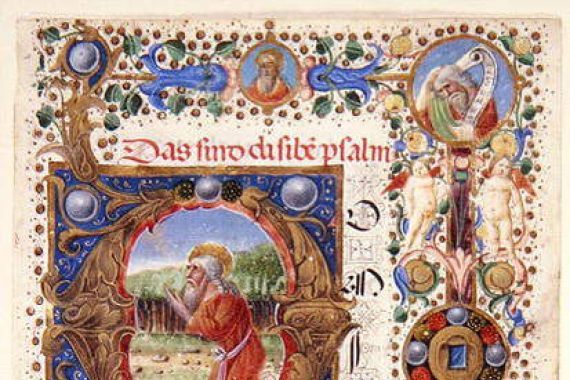 Das sind di sibē psalm